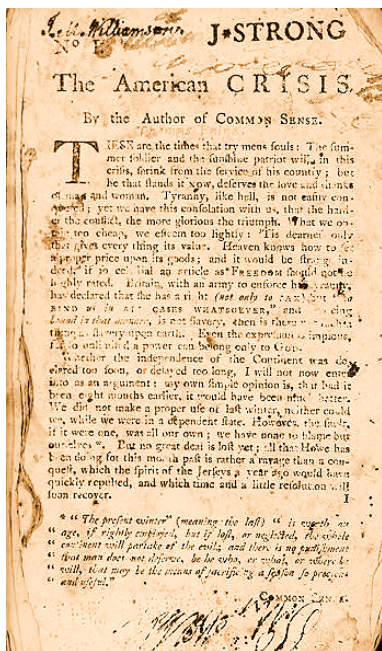 J. Williamson J*STRONG
No I.
The American CRISIS.
By the Author of COMMON SENSE.
THESE are the times that try mens souls: The sum-
mer soldier and the sunshine patriot will, in this
crisis, shrink from the service of his country; but
he that stands it NOW, deserves the love and thanks
of man and woman. Tyranny, like hell, is not easily con-
quered; yet we have this consolation with us, that the hard-
er the conflict, the more glorious the triumph. What we ob-
tain too cheap, we esteem too lightly: 'Tis dearness only
that gives every thing its value. Heaven knows how to set
a proper price upon its goods; and it would be strange in-
deed, if so celestial an article as FREEDOM should not be
highly rated. Britain, with an army to enforce her tyranny,
has declared that she has a right (not only to TAX) but "to
BIND us in ALL CASES WHATSOEVER," and being
bound in that manner, is not slavery, then is there not
thing as slavery upon earth. Even the expression is impious,
for so unlimited a power can belong only to GOD.
Whether the independence of the Continent was de-
clared too soon, or delayed too long, I will not now enter
into as an argument; my own simple opinion is, that had it
been eight months earlier, it would have been much better.
We did not make a proper use of last winter, neither could
we, while we were in a dependent state. However, the fault,
if it were one, was all our own; we have none to blame but
ourselves*. But no great deal is lost yet; all that Howe has
been doing for this month past is rather a ravage than a con-
quest, which the spirit of the Jerseys a year ago would have
quickly repulsed, and which time and a little resolution will
soon recover.
I
* "The present winter" (meaning the last) "is worth an
"age, if rightly employed, but if lost, or neglected, the whole
"continent will partake of the evil; and there is no punishment
"that man does not deserve, be he who, or what, or where he
"will, that may be the means of sacrificing a season so precious
"and useful."
COMMON SENSE.